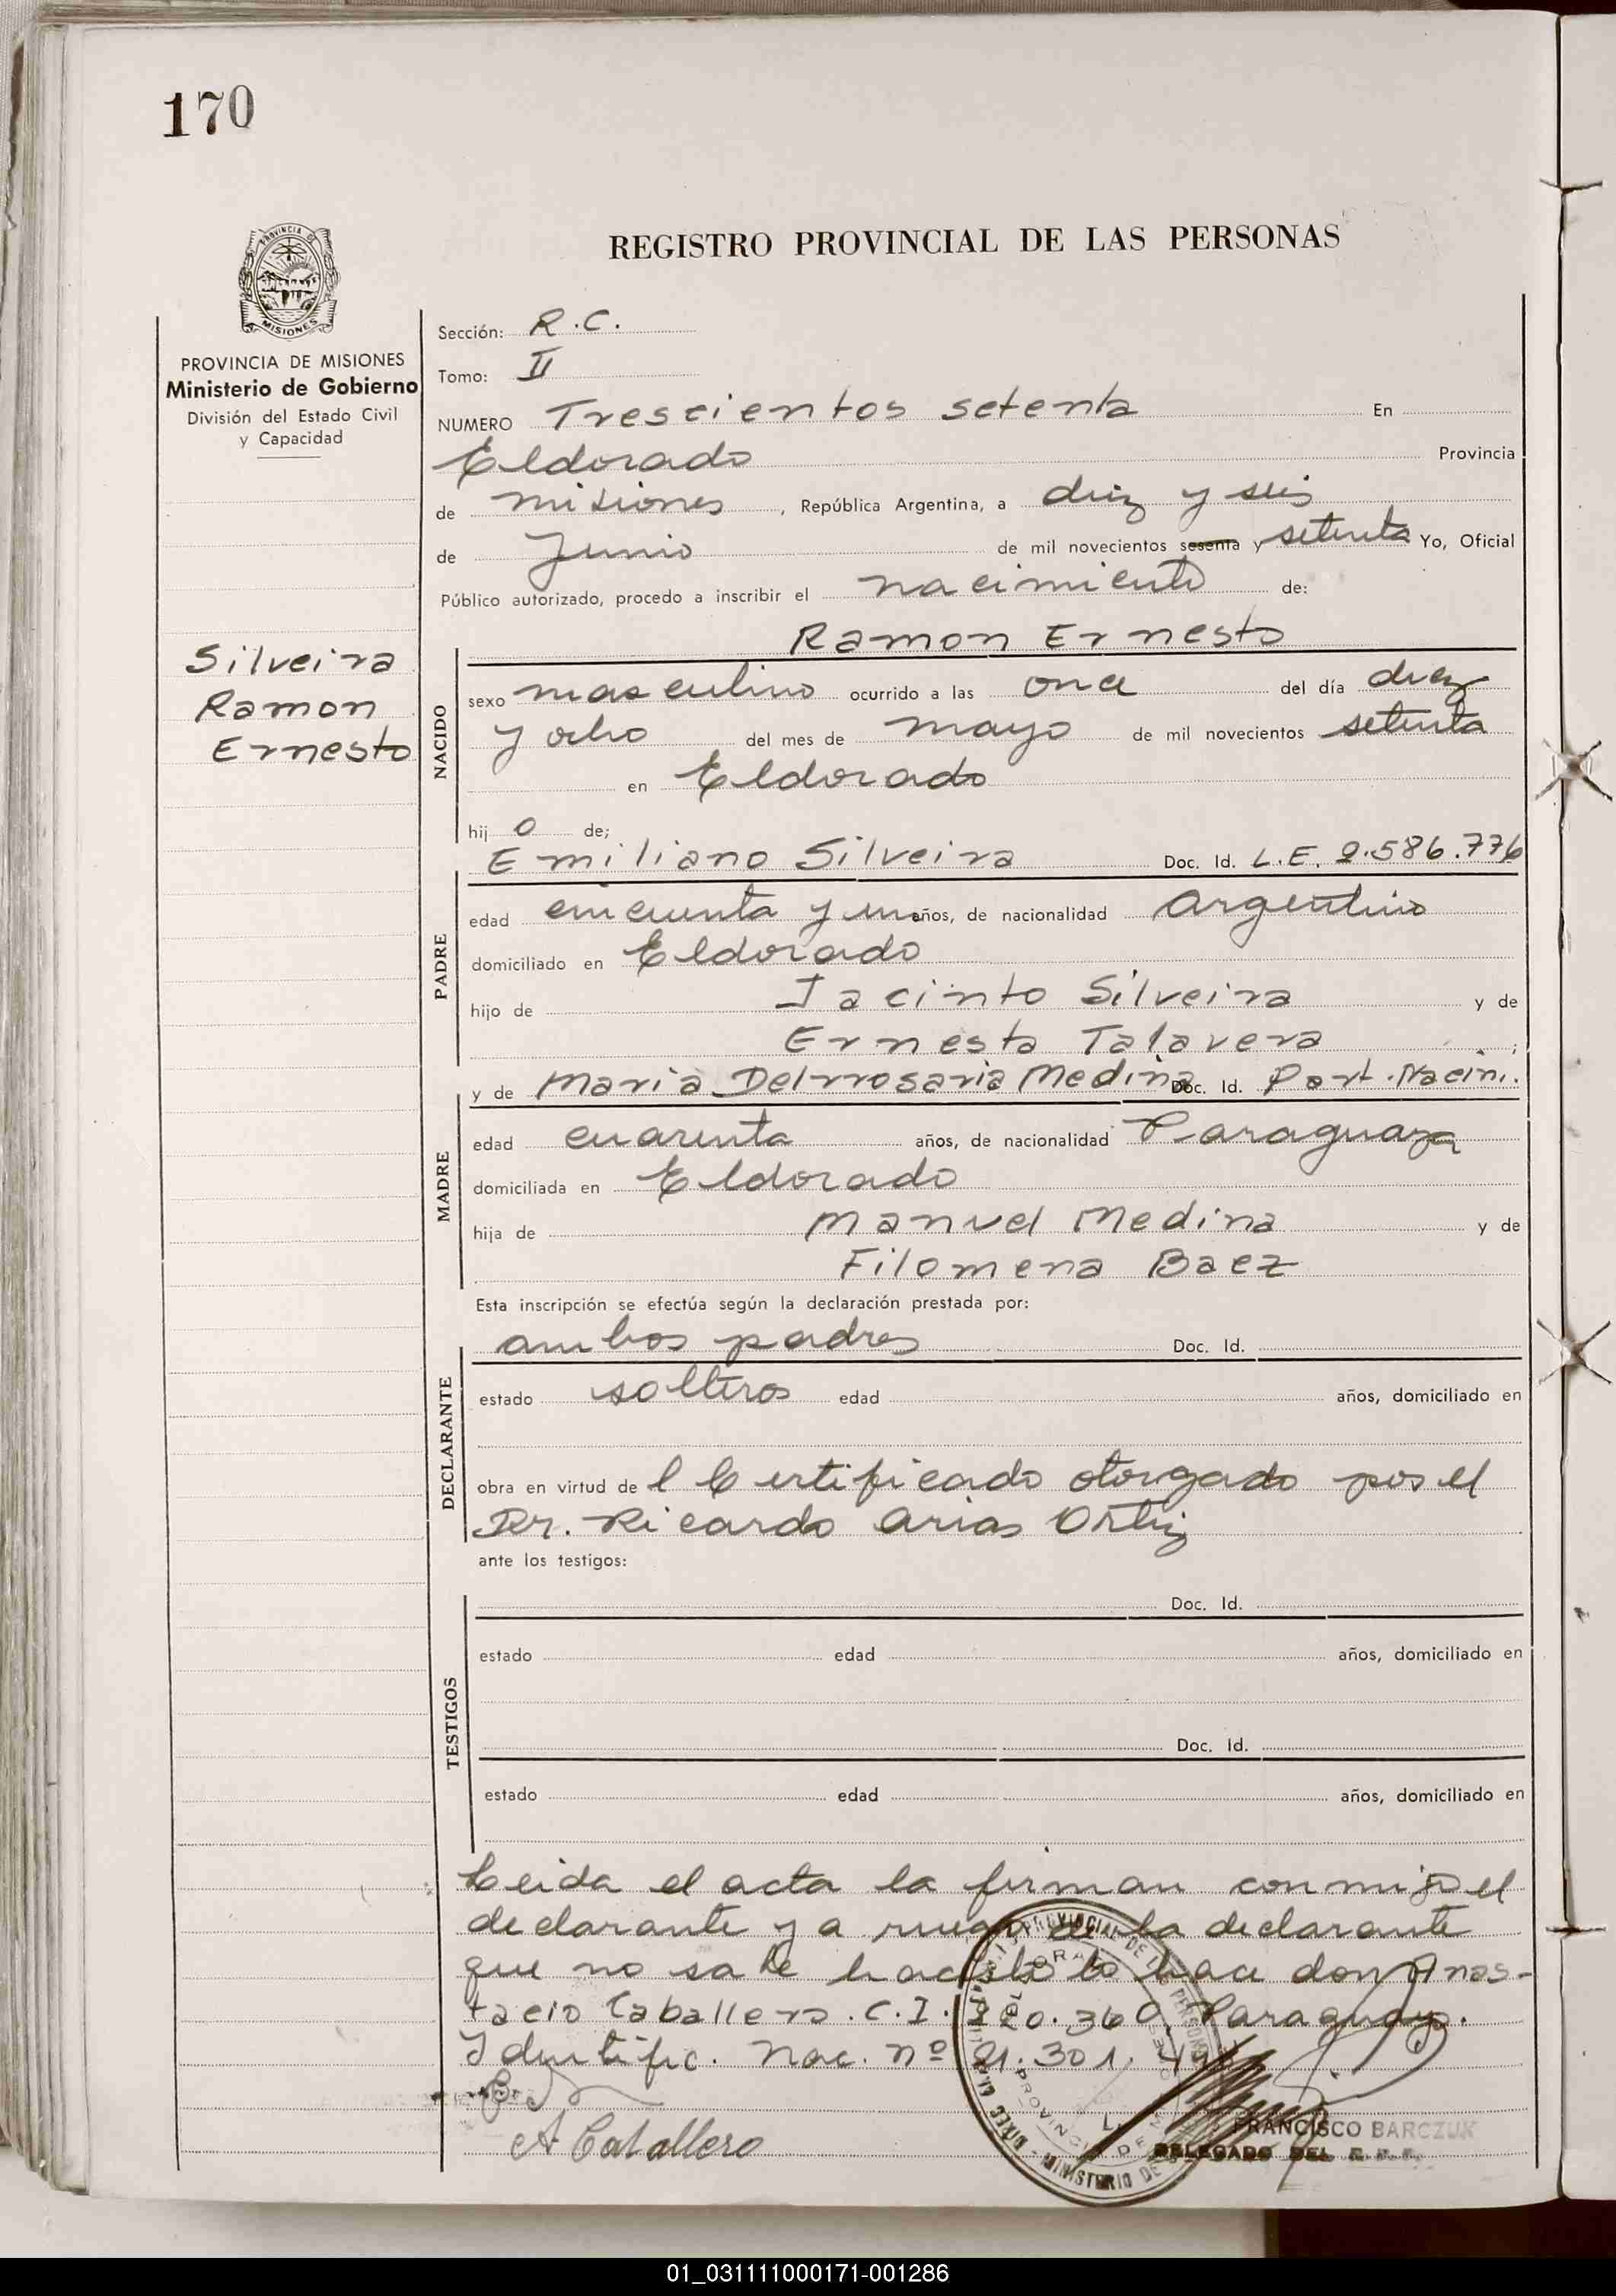 170
PROVINCIA DE
MISIONES
REGISTRO PROVINCIAL DE LAS PERSONAS
PROVINCIA DE MISIONES
Ministerio de Gobierno
División del Estado Civil
y Capacidad
Silveira
Ramon
Ernesto
Sección: R.C.
Tomo: II
NUMERO Trescientos setenta En
Eldorado Provincia
de misiones, República Argentina, a diez y seis
de Junio de mil novecientos sesenta y setenta Yo, Oficial
Público autorizado, procedo a inscribir el nacimiento de:
Ramon Ernesto
NACIDO
sexo masculino ocurrido a las once del día diez
y ocho del mes de mayo de mil novecientos setenta
en Eldorado
hij o de;
Emiliano Silveira Doc. Id. L.E. 2.586.776
PADRE
edad cincuenta y un años, de nacionalidad argentino
domiciliado en Eldorado
hijo de Jacinto Silveira y de
Ernesta Talavera ;
y de Maria Delrrosaria Medina Doc. Id. Part. Nacim.
MADRE
edad cuarenta años, de nacionalidad Paraguaya
domiciliada en Eldorado
hija de Manuel Medina y de
Filomena Baez
Esta inscripción se efectúa según la declaración prestada por:
ambos padres Doc. Id.
DECLARANTE
estado solteros edad años, domiciliado en
obra en virtud de l Certificado otorgado por el
Dr. Ricardo Arias Ortiz
ante los testigos:
Doc. Id.
TESTIGOS
estado edad años, domiciliado en
Doc. Id.
estado edad años, domiciliado en
Leida el acta la firman conmigo el
declarante y a ruego de la declarante
que no sabe hacerlo lo hace don Anas-
tacio Caballero. C.I. 220.360 Paraguay.
Identific. Nac. nº 21.301.
A Caballero
FRANCISCO BARCZUK
DELEGADO DEL
01_031111000171-001286